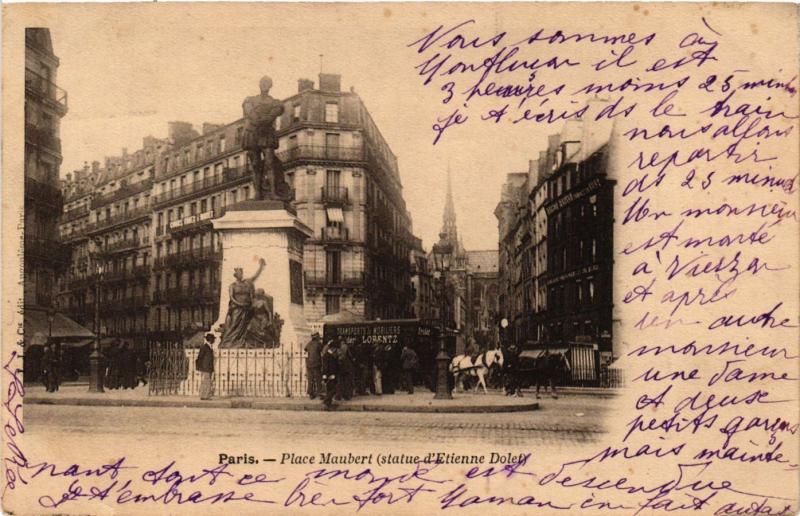 Vous sommes à
Montluçon il est
3 heures moins 25 minut
je t'écris ds le train
nous allons
repartir
ds 25 minut
Un monsieur
est monté
à Vierzon
et après
un autre
monsieur
une dame
et deuse
petits garçons
mais mainte-
nant tout ce monde est descendue
Je t'embrasse bien fort Maman en fait autan
A. J. & Cie. édit. Angoulême-Paris
TRANSPORTS DE MOBILIERS
LORENTZ
Paris. — Place Maubert (statue d'Etienne Dolet)